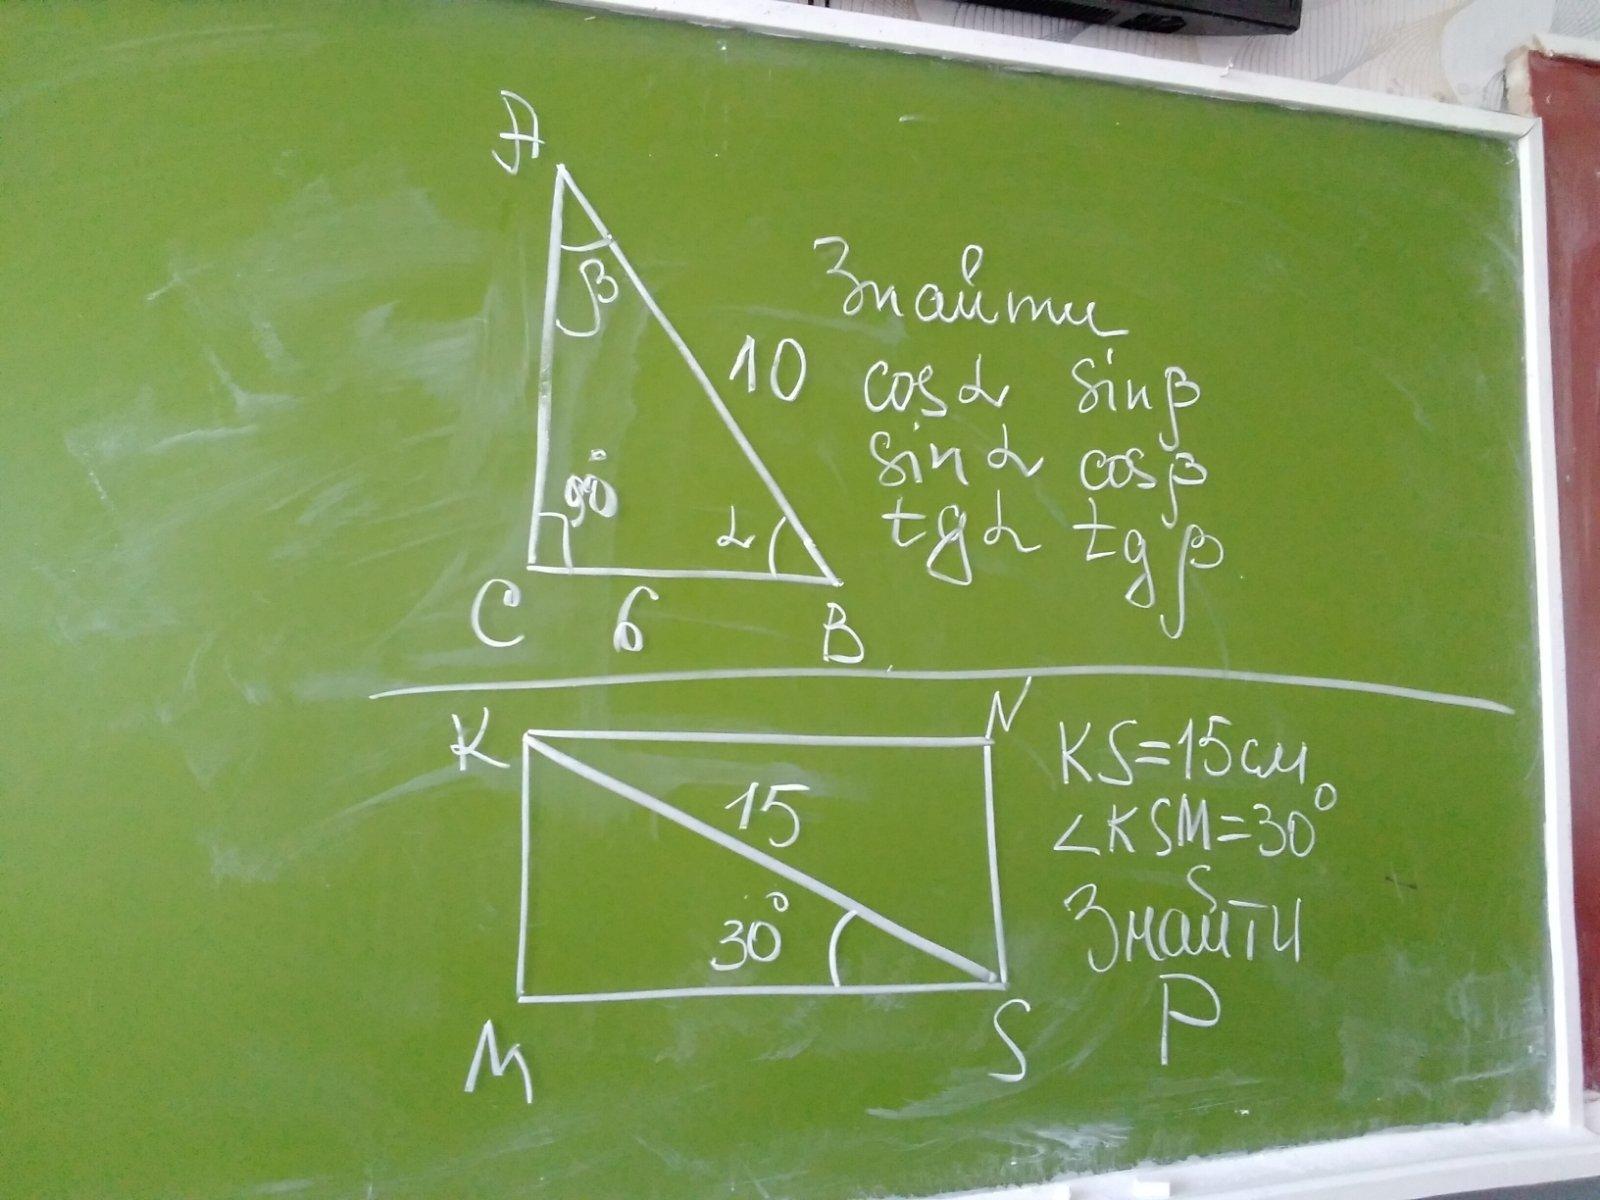 A
β
10
90°
α
C 6 B
Знайти
cosα sinβ
sinα cosβ
tgα tgβ
K N
15
30°
M S
KS=15см
∠KSM=30°
Знайти
P